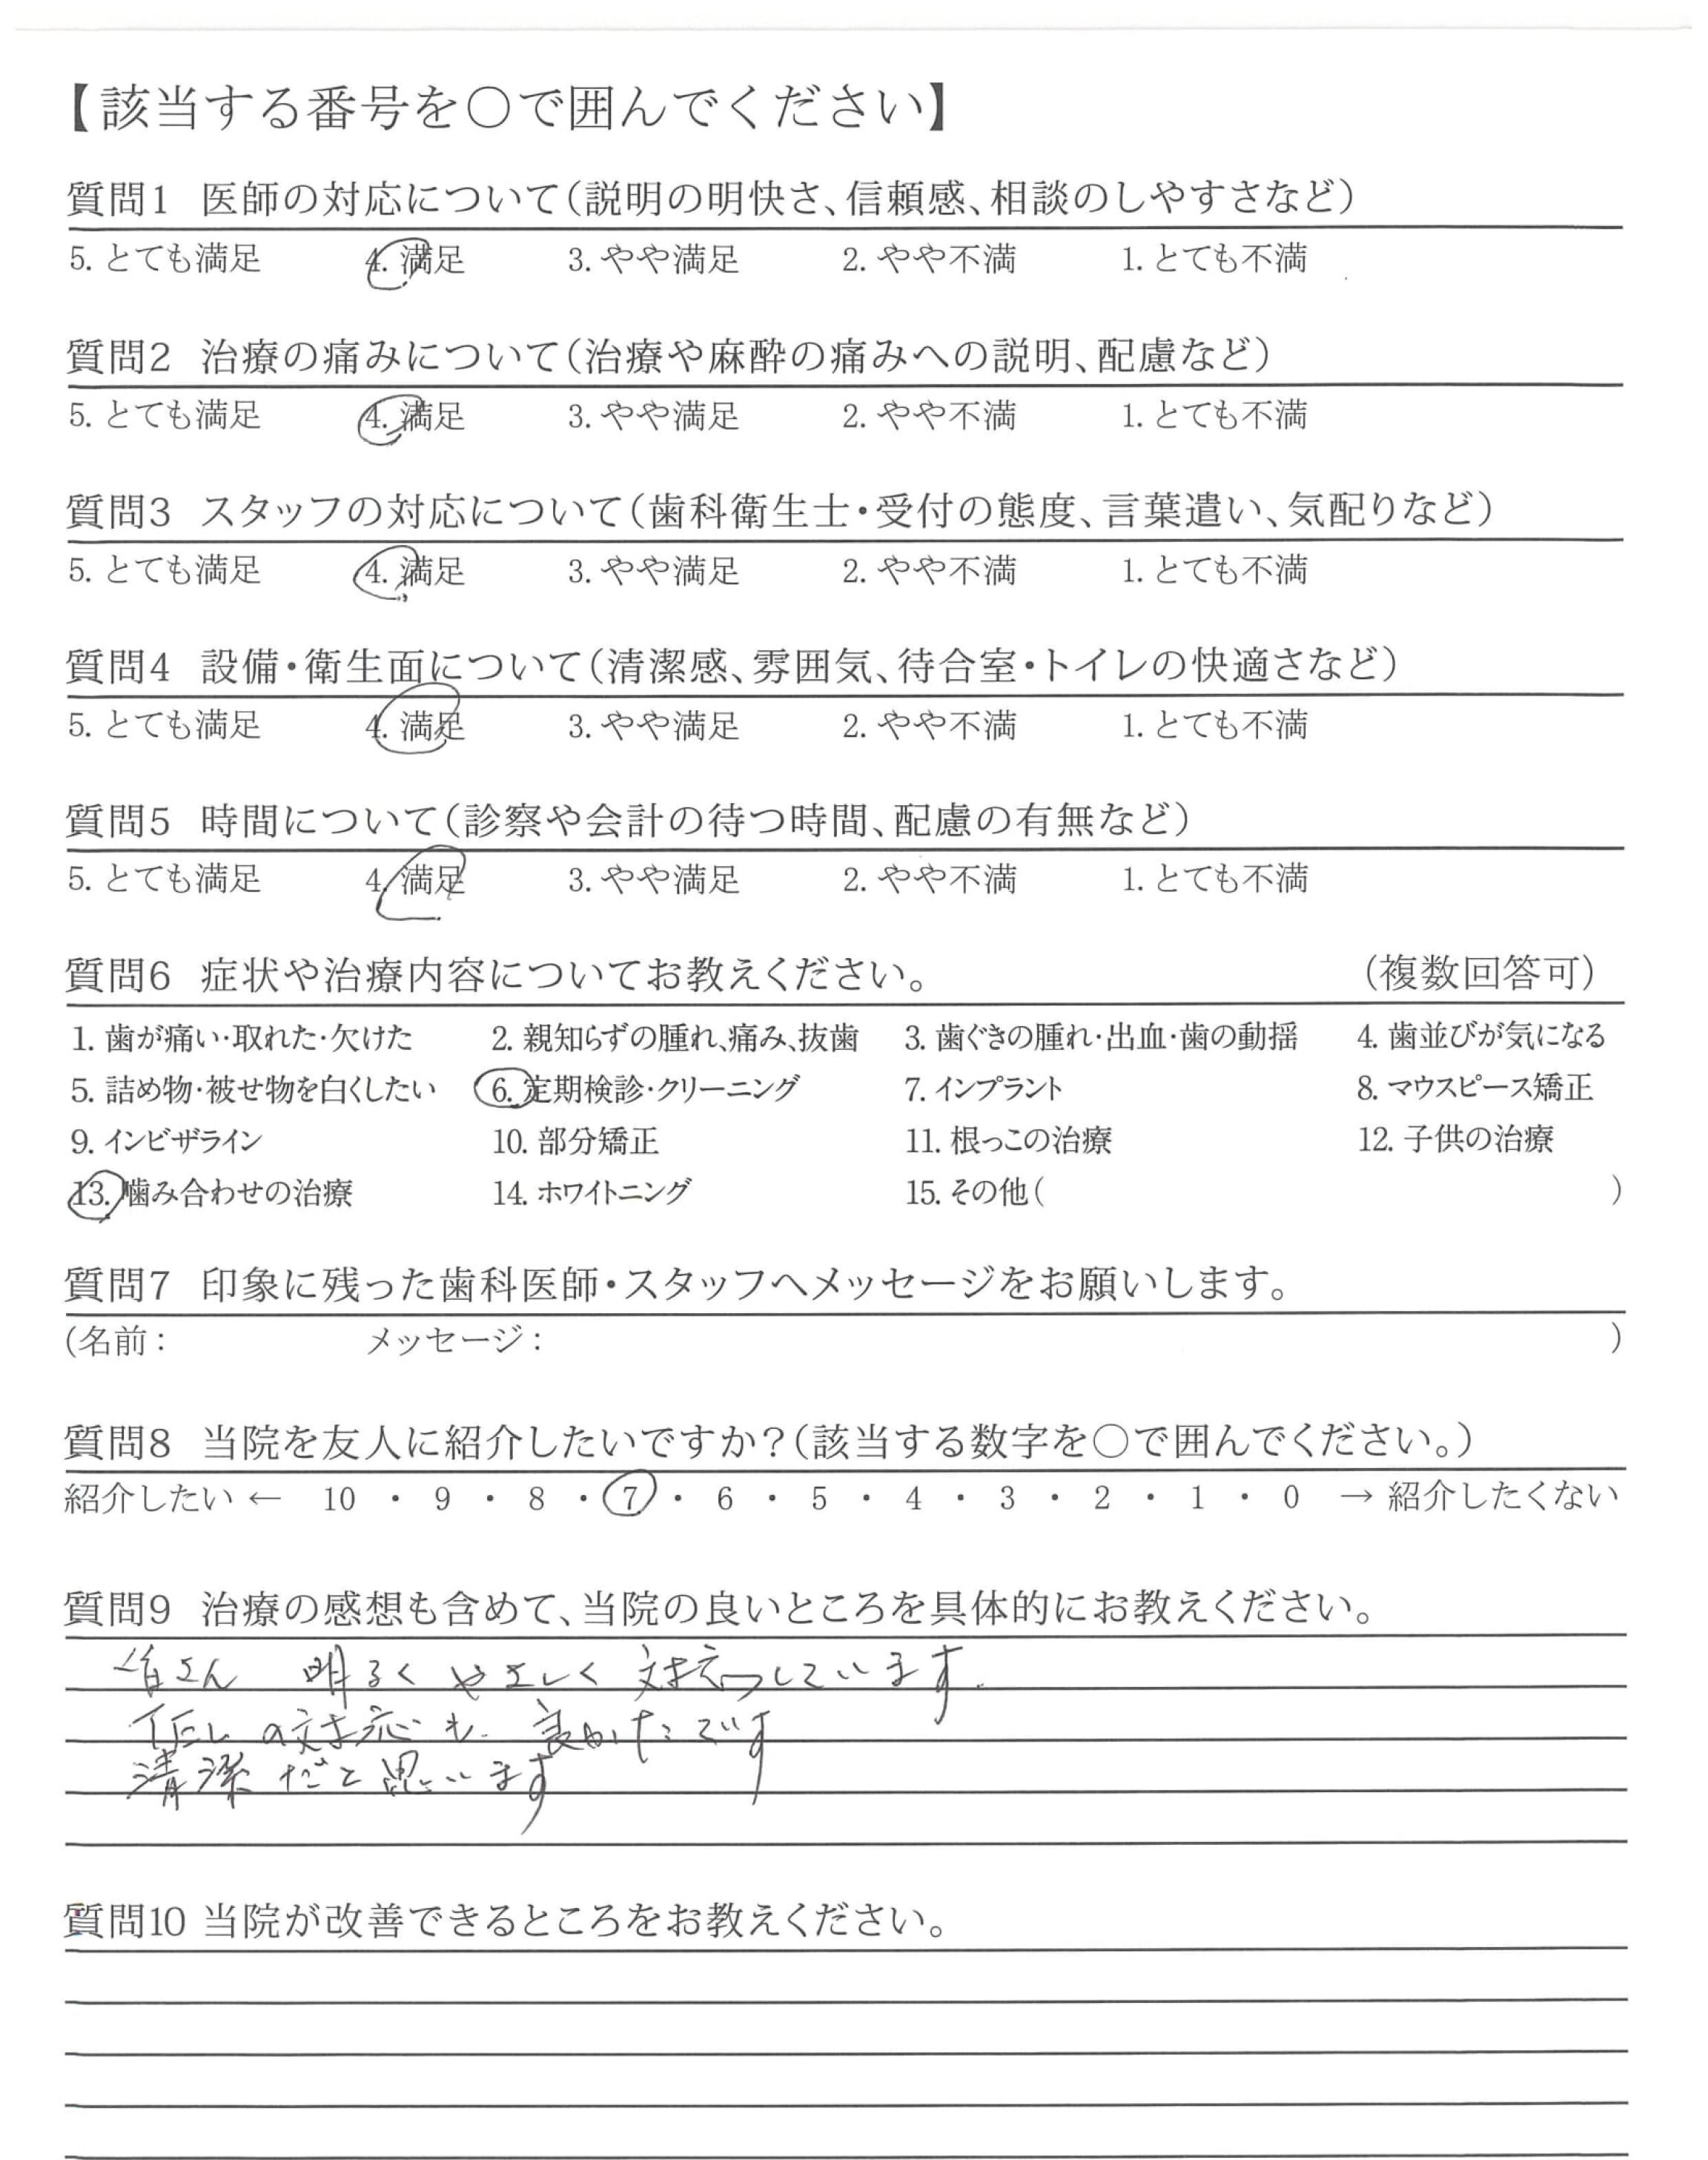 【該当する番号を○で囲んでください】
質問1 医師の対応について(説明の明快さ、信頼感、相談のしやすさなど)
5. とても満足 4. 満足 3. やや満足 2. やや不満 1. とても不満
質問2 治療の痛みについて(治療や麻酔の痛みへの説明、配慮など)
5. とても満足 4. 満足 3. やや満足 2. やや不満 1. とても不満
質問3 スタッフの対応について(歯科衛生士・受付の態度、言葉遣い、気配りなど)
5. とても満足 4. 満足 3. やや満足 2. やや不満 1. とても不満
質問4 設備・衛生面について(清潔感、雰囲気、待合室・トイレの快適さなど)
5. とても満足 4. 満足 3. やや満足 2. やや不満 1. とても不満
質問5 時間について(診察や会計の待つ時間、配慮の有無など)
5. とても満足 4. 満足 3. やや満足 2. やや不満 1. とても不満
質問6 症状や治療内容についてお教えください。 (複数回答可)
1. 歯が痛い・取れた・欠けた 2. 親知らずの腫れ、痛み、抜歯 3. 歯ぐきの腫れ・出血・歯の動揺 4. 歯並びが気になる
5. 詰め物・被せ物を白くしたい 6. 定期検診・クリーニング 7. インプラント 8. マウスピース矯正
9. インビザライン 10. 部分矯正 11. 根っこの治療 12. 子供の治療
13. 噛み合わせの治療 14. ホワイトニング 15. その他( )
質問7 印象に残った歯科医師・スタッフへメッセージをお願いします。
(名前: メッセージ: )
質問8 当院を友人に紹介したいですか?(該当する数字を○で囲んでください。)
紹介したい ← 10 ・ 9 ・ 8 ・ 7 ・ 6 ・ 5 ・ 4 ・ 3 ・ 2 ・ 1 ・ 0 → 紹介したくない
質問9 治療の感想も含めて、当院の良いところを具体的にお教えください。
皆さん 明るくやさしく対応しています.
の対応も 良かったです
清潔だと思います
質問10 当院が改善できるところをお教えください。